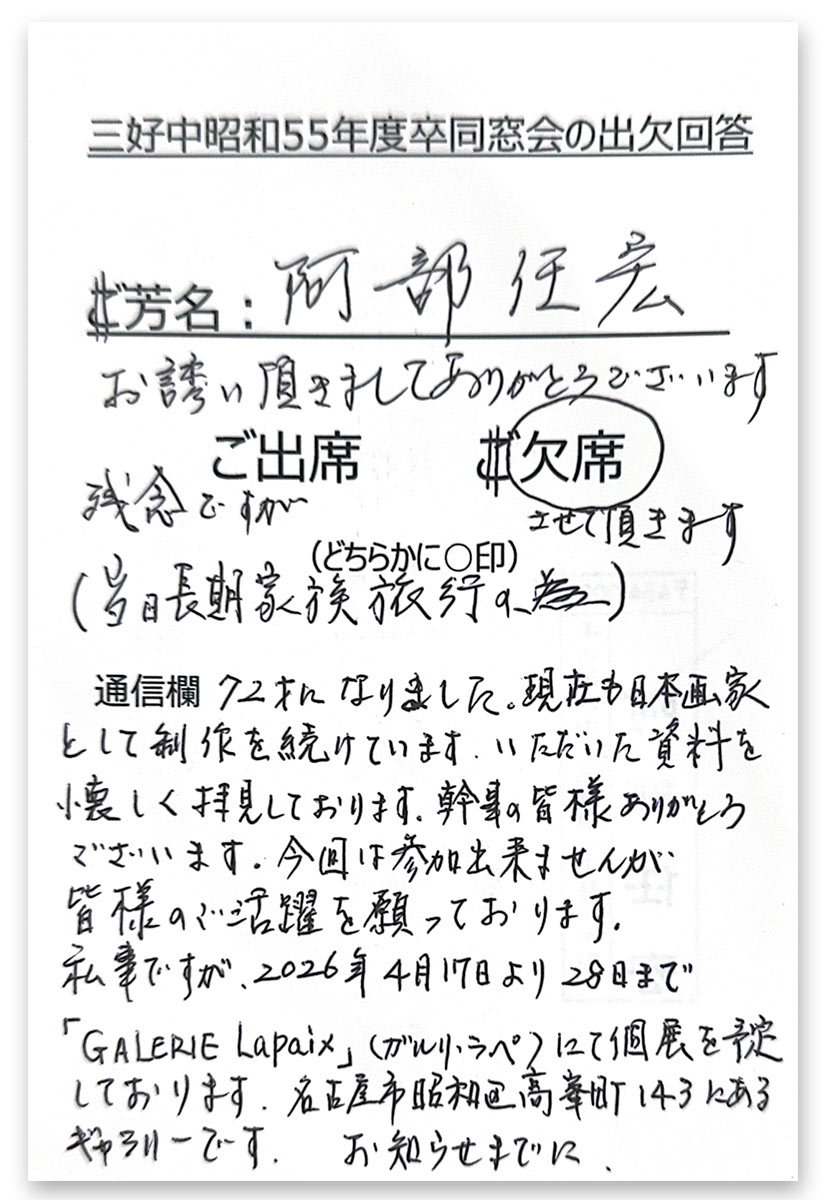 三好中昭和55年度卒同窓会の出欠回答
ご芳名：阿部任宏
お誘い頂きましてありがとうございます
ご出席 ご欠席
残念ですが させて頂きます
（どちらかに○印）
(当日長期家族旅行の為)
通信欄 72才になりました。現在も日本画家
として制作を続けています。いただいた資料を
懐しく拝見しております。幹事の皆様ありがとう
ございます。今回は参加出来ませんが
皆様のご活躍を願っております。
私事ですが、2026年4月17日より28日まで
「GALERIE Lapaix」(ガルリ・ラペ)にて個展を予定
しております。名古屋市昭和区高峯町143にある
ギャラリーです。 お知らせまでに。